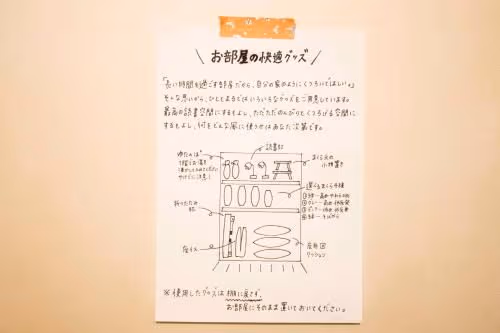 お部屋の快適グッズ
「長い時間を過ごす部屋だから、自分の家のようにくつろいでほしい。」
そんな思いから、ひとともるではいろいろなグッズをご用意しています。
最高の読書空間にするもよし、ただただのんびりとくつろげる空間に
するもよし、何をどんな風に使うかはあなた次第です。
読書灯
ゆたんぽ
まくら元の
小物置き
選べるまくら4種
折りたたみ
机
座イス
座布団
クッション
※使用したグッズは棚に戻さず、
お部屋にそのまま置いておいてください。